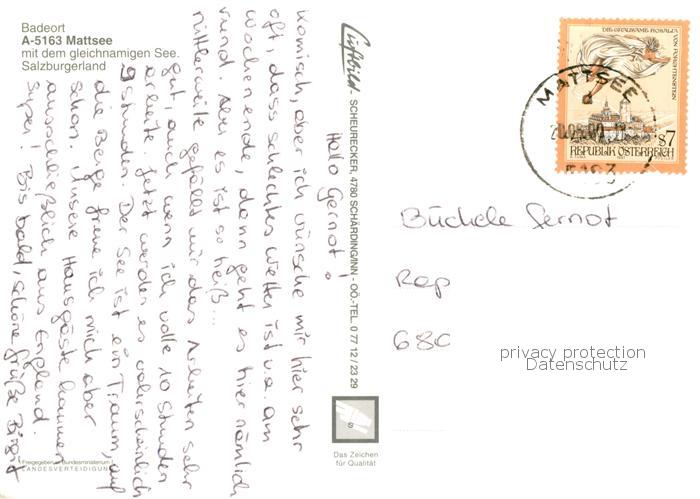 Badeort
A-5163 Mattsee
mit dem gleichnamigen See.
Salzburgerland
Hallo Gernot!
Komisch, aber ich wünsche mir hier sehr
oft, dass schlechtes Wetter ist v.a. am
Wochenende, dann geht es hier nämlich
rund. Aber es ist so heiß...
Mittlerweile gefällt mir das Arbeiten sehr
gut, auch wenn ich volle 10 Stunden
arbeite. Jetzt werden es wahrscheinlich
9 Stunden. Der See ist ein Traum, auf
die Berge freue ich mich aber
schon. Unsere Hausgäste kommen
ausschließlich aus England.
Super! Bis bald, schöne Grüße Birgit
Freigegeben v. Bundesministerium f.
LANDESVERTEIDIGUNG
Luftbild - SCHEURECKER, 4780 SCHÄRDING/INN - OÖ.-TEL. 0 77 12 / 23 29
Das Zeichen
für Qualität
DIE GRAUSAME ROSALIA
VON FORCHTENSTEIN
S7
REPUBLIK ÖSTERREICH
MATTSEE
5163
Büchele Gernot
Rap
680
privacy protection
Datenschutz